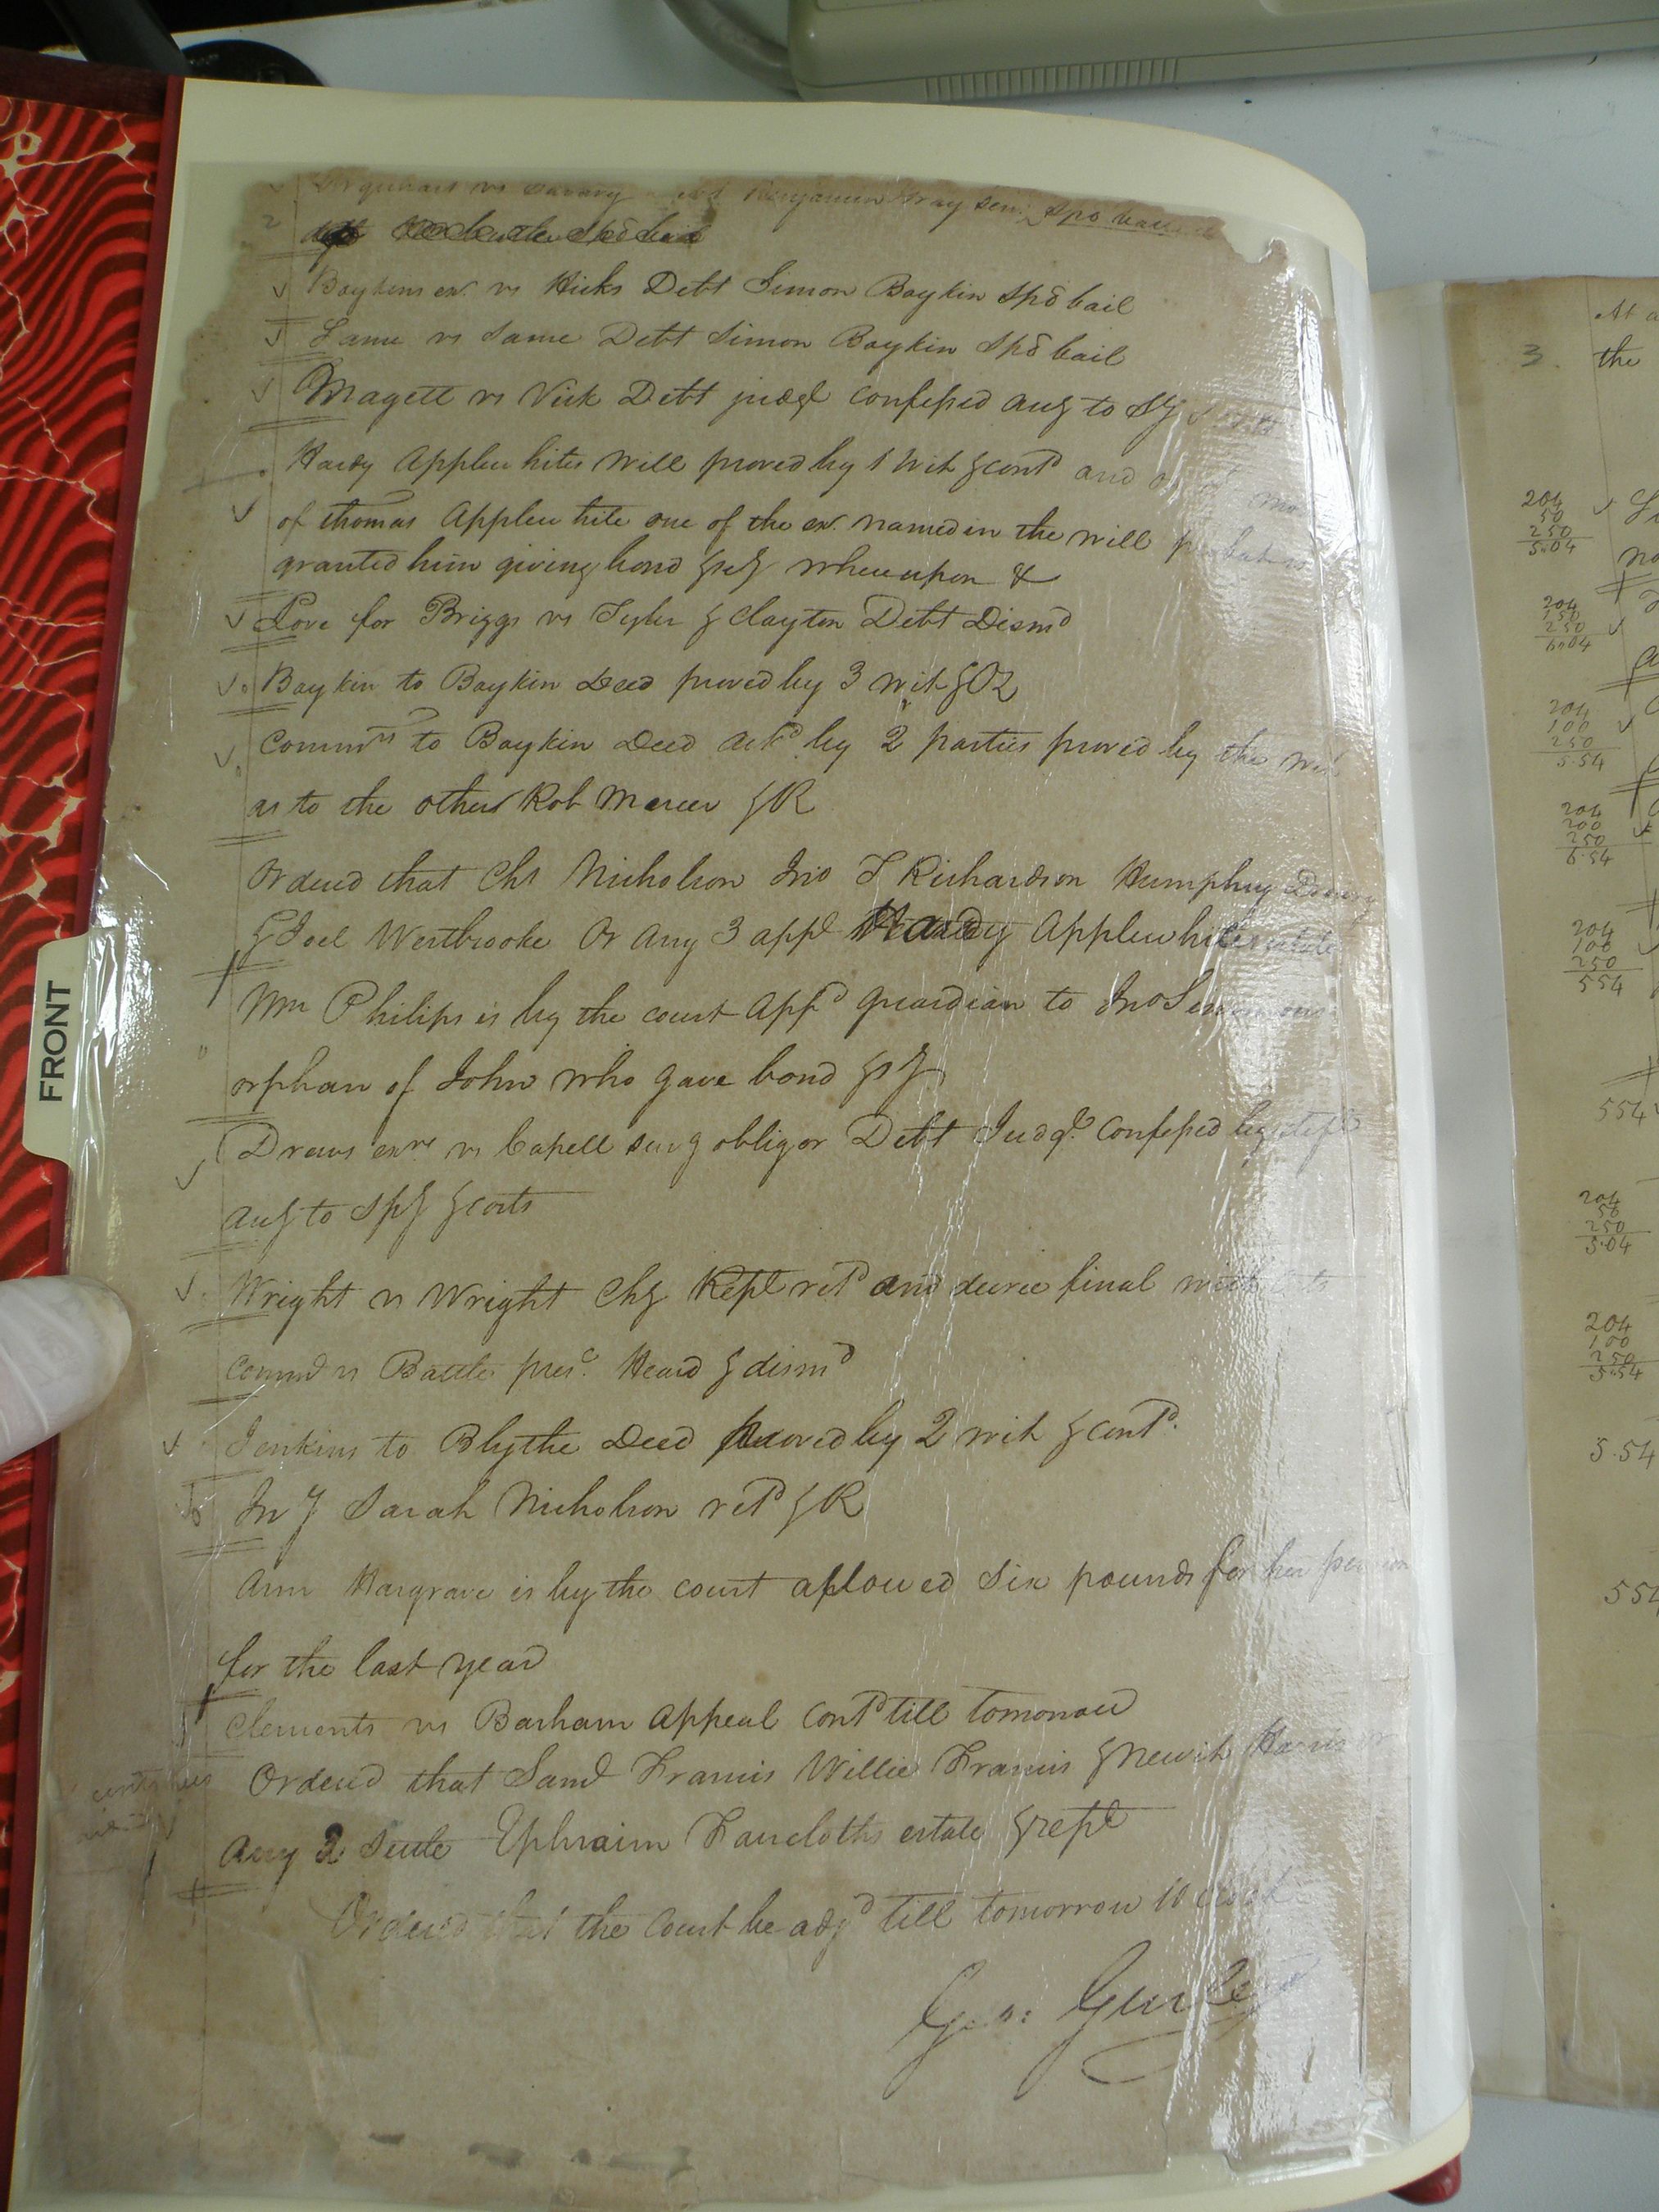 Urquhart vs Benjamin Gray Sen. Spo bail
Boykins ex. vs Hicks Debt Simon Boykin Spō bail
Same vs Same Debt Simon Boykin Spō bail
Magett vs Vick Debt judgt confessed
Hardy Applewhites Will proved by 1 Wit & contd and
of Thomas Applewhite one of the ex. named in the will
granted him giving bond &sy whereupon &
Love for Briggs vs Tyler & Clayton Debt Dismd
Boykin to Boykin Deed proved by 3 wit & OR
Commrs to Boykin Deed ackd by 2 parties proved by the wit
as to the other Rob Mercer & R
Ordered that Chs Nicholson Jno T Richardson Humphrey Drewry
& Joel Westbrooke Or Any 3 appe Hardy Applewhites estate
Wm Philips is by the court appd guardian to Jno
orphan of John who gave bond &sy
Drews exrs vs Capell survg obligor Debt Judgt. Confessed by
Wright vs Wright Chy Rept retd and decree final with
Commth vs Battle pres. Heard & dismd
Jenkins to Blythe Deed proved by 2 wit & contd.
Inv Sarah Nicholson retd & R
Ann Hargrave is by the court allowed Six pounds for her pension
for the last year
Clements vs Barham Appeal Contd till tomorrow
Ordered that Saml Francis Willie Francis & Newit Harris or
Any 2 Settle Ephraim Faircloths estate & rept
Ordered that the Court be adjd till tomorrow 10 clock
Geo: Gurley
FRONT
At a
3. the
204
50
250
5.04
no
204
150
250
6.04
204
100
250
5.54
204
200
250
6.54
204
100
250
554
554
204
50
250
5.04
204
100
250
5.54
5.54
554